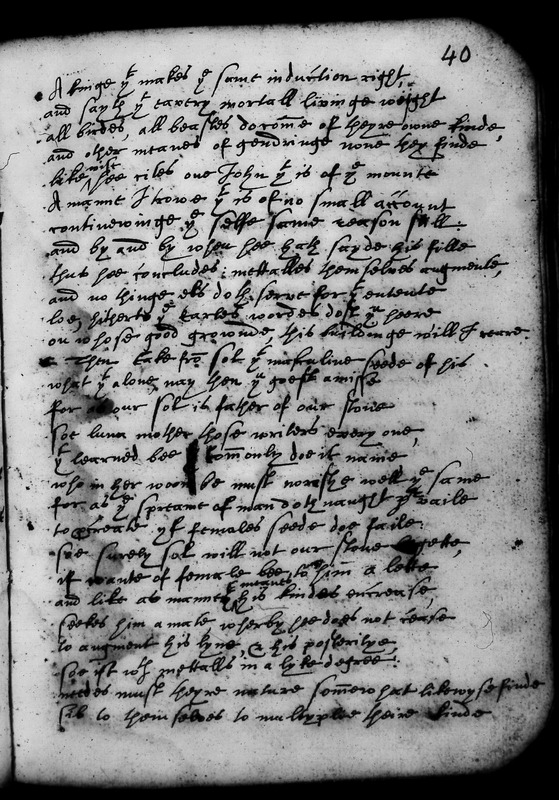 40
A kinge yt makes ye same induction right,
and sayth yt every mortall livinge weight
all birdes, all beastes do come of theyre owne kinde,
and other meanes of gendringe none they finde
likewise hee cites one John yt is of ye mounte
A name I trowe yt is of no small account
continewinge ye selfe same reason still:
and by and by when hee hath sayde his fille
thus hee concludes: mettalles themselves augmente,
and no thinge els doth serve for yt entente
loe, hitherto ye Earles wordes dost yu heere
on whose good grownde, his buildinge will I reare
Then take fro sol yt maskuline seede of his
what yt alone, nay then yu goest amisse
for our sol is father of our stone
soe luna mother those writers every one,
yt learned bee commonly doe it name
who in her wombe must norishe well ye same
for as ye spreame of man doth naught prvaile
to create yf females seede doe faile:
soe surely sol will not our stone begette,
if wante of female bee to him a lette
and like as manne by meanes his kindes encrease,
seekes him a mate wherby hee does not cease
to augment his lyne, & his posteritye,
soe ist wh mettalls in a lyke degree:
needes must theyre nature somewhat likewyse finde
sib to themselves to multyplie theire kinde